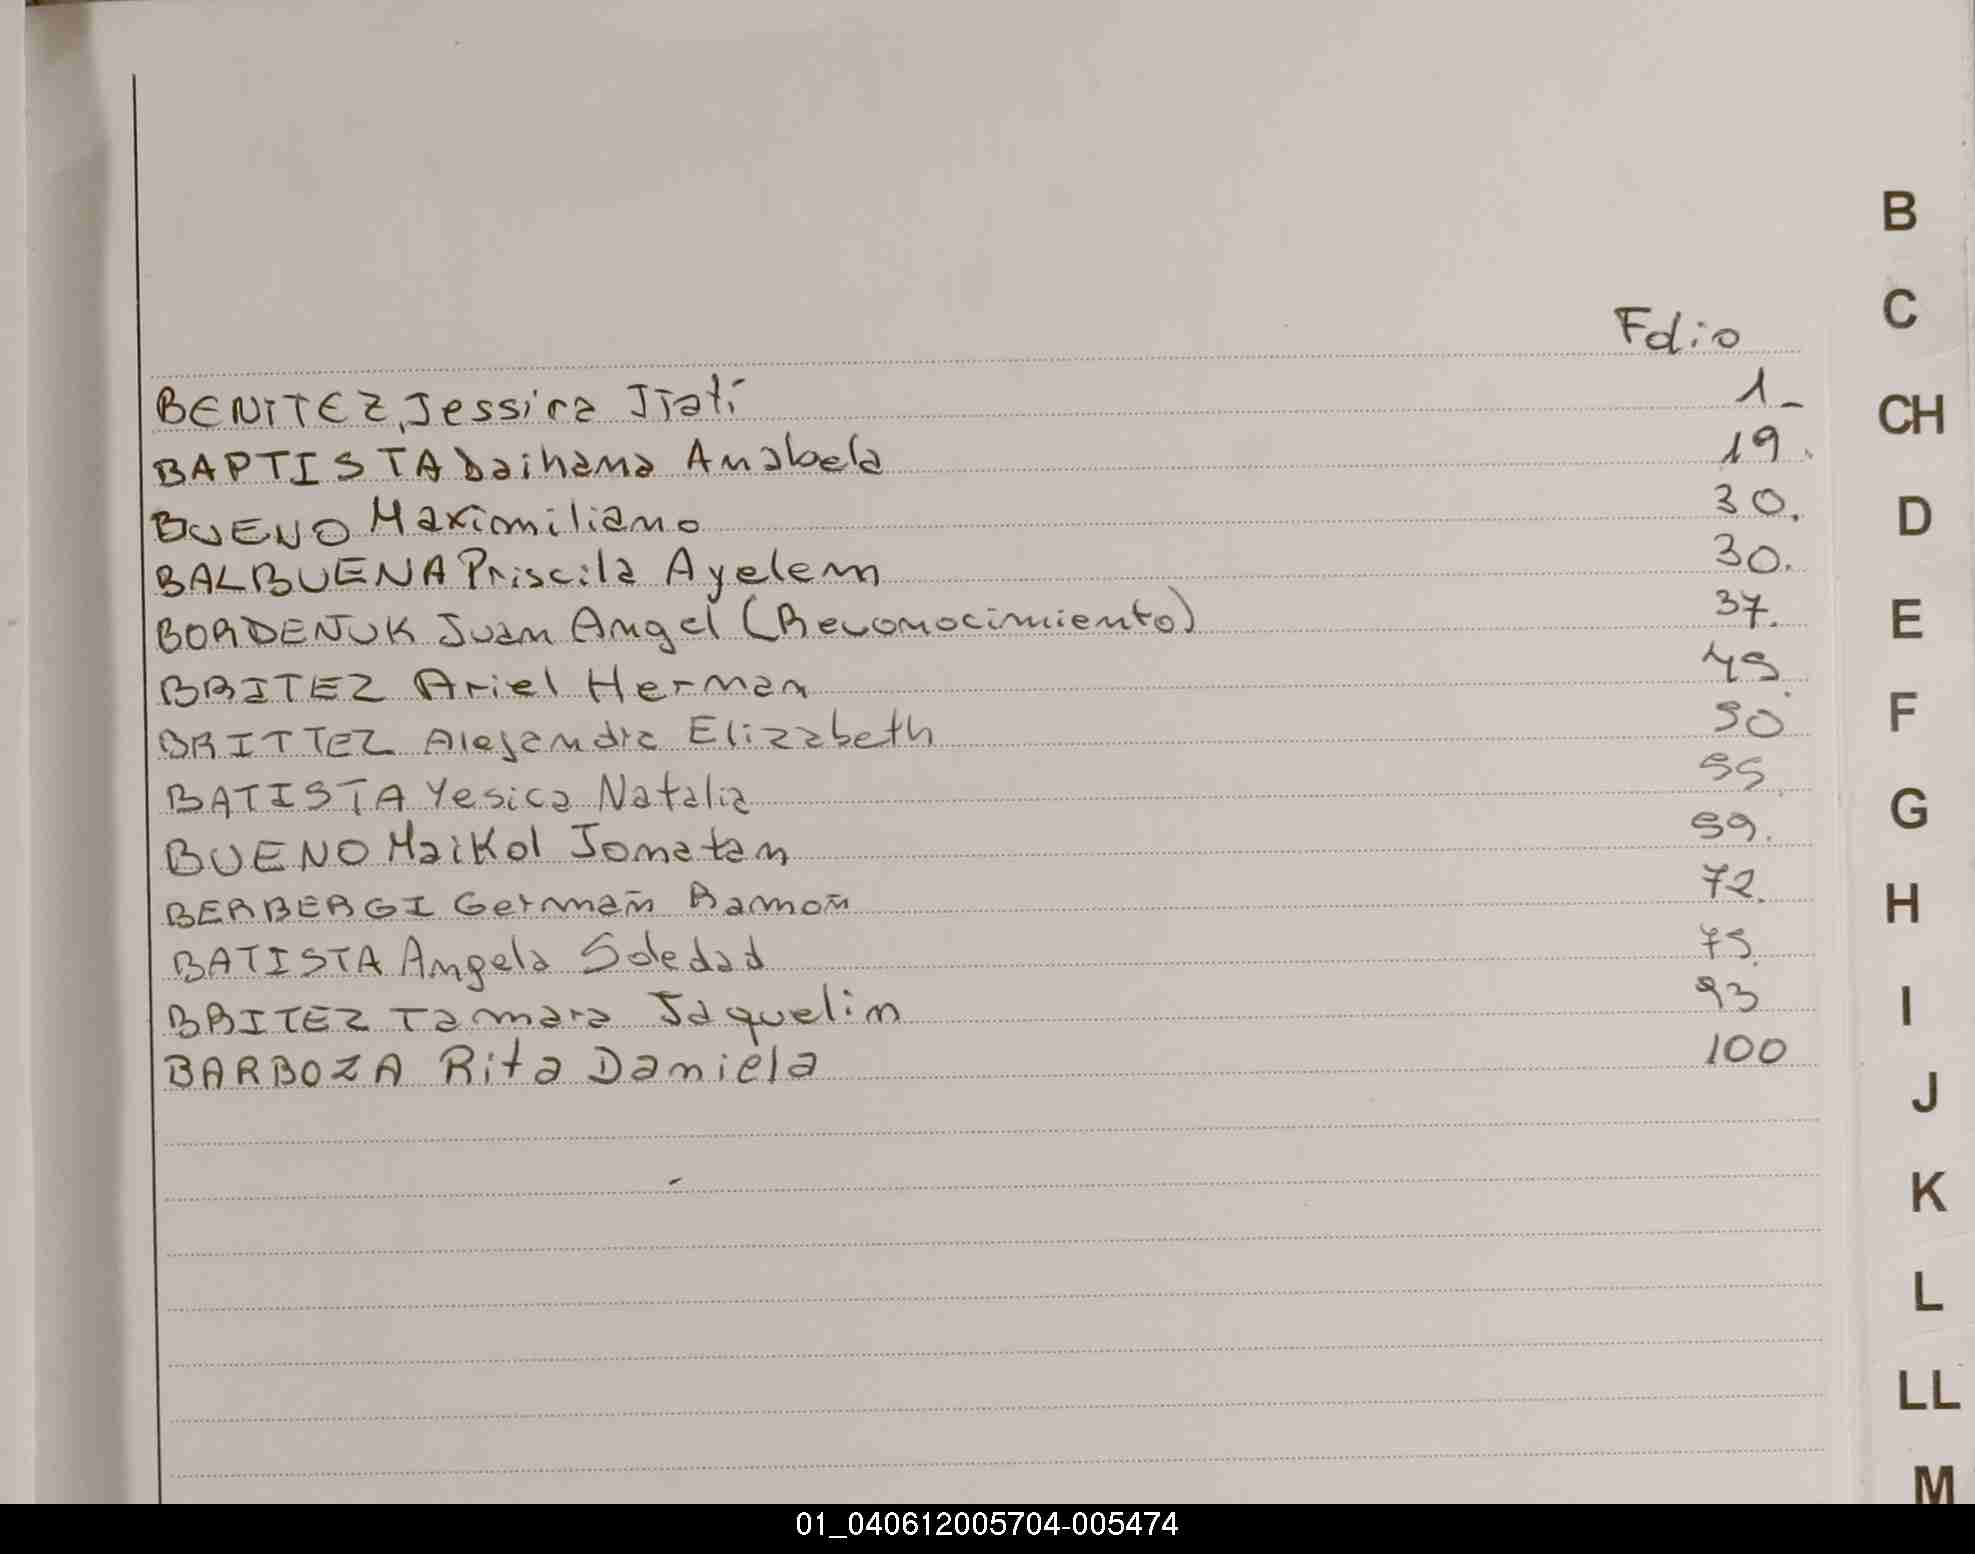 Folio
BENITEZ, Jessica Itatí 1_
BAPTISTA Daihana Anabela 19.
BUENO Maximiliano 30.
BALBUENA Priscila Ayelem 30.
BORDENJUK Juan Angel (Reconocimiento) 37.
BRITEZ Ariel Hernan 45.
BRITTEZ Alejandra Elizabeth 50
BATISTA Yesica Natalia 55.
BUENO Maikol Jonatan 59.
BERBERGI Germañ Ramoñ 72.
BATISTA Angela Soledad 75.
BRITEZ Tamara Jaquelin 93
BARBOZA Rita Daniela 100
B
C
CH
D
E
F
G
H
I
J
K
L
LL
M
01_040612005704-005474